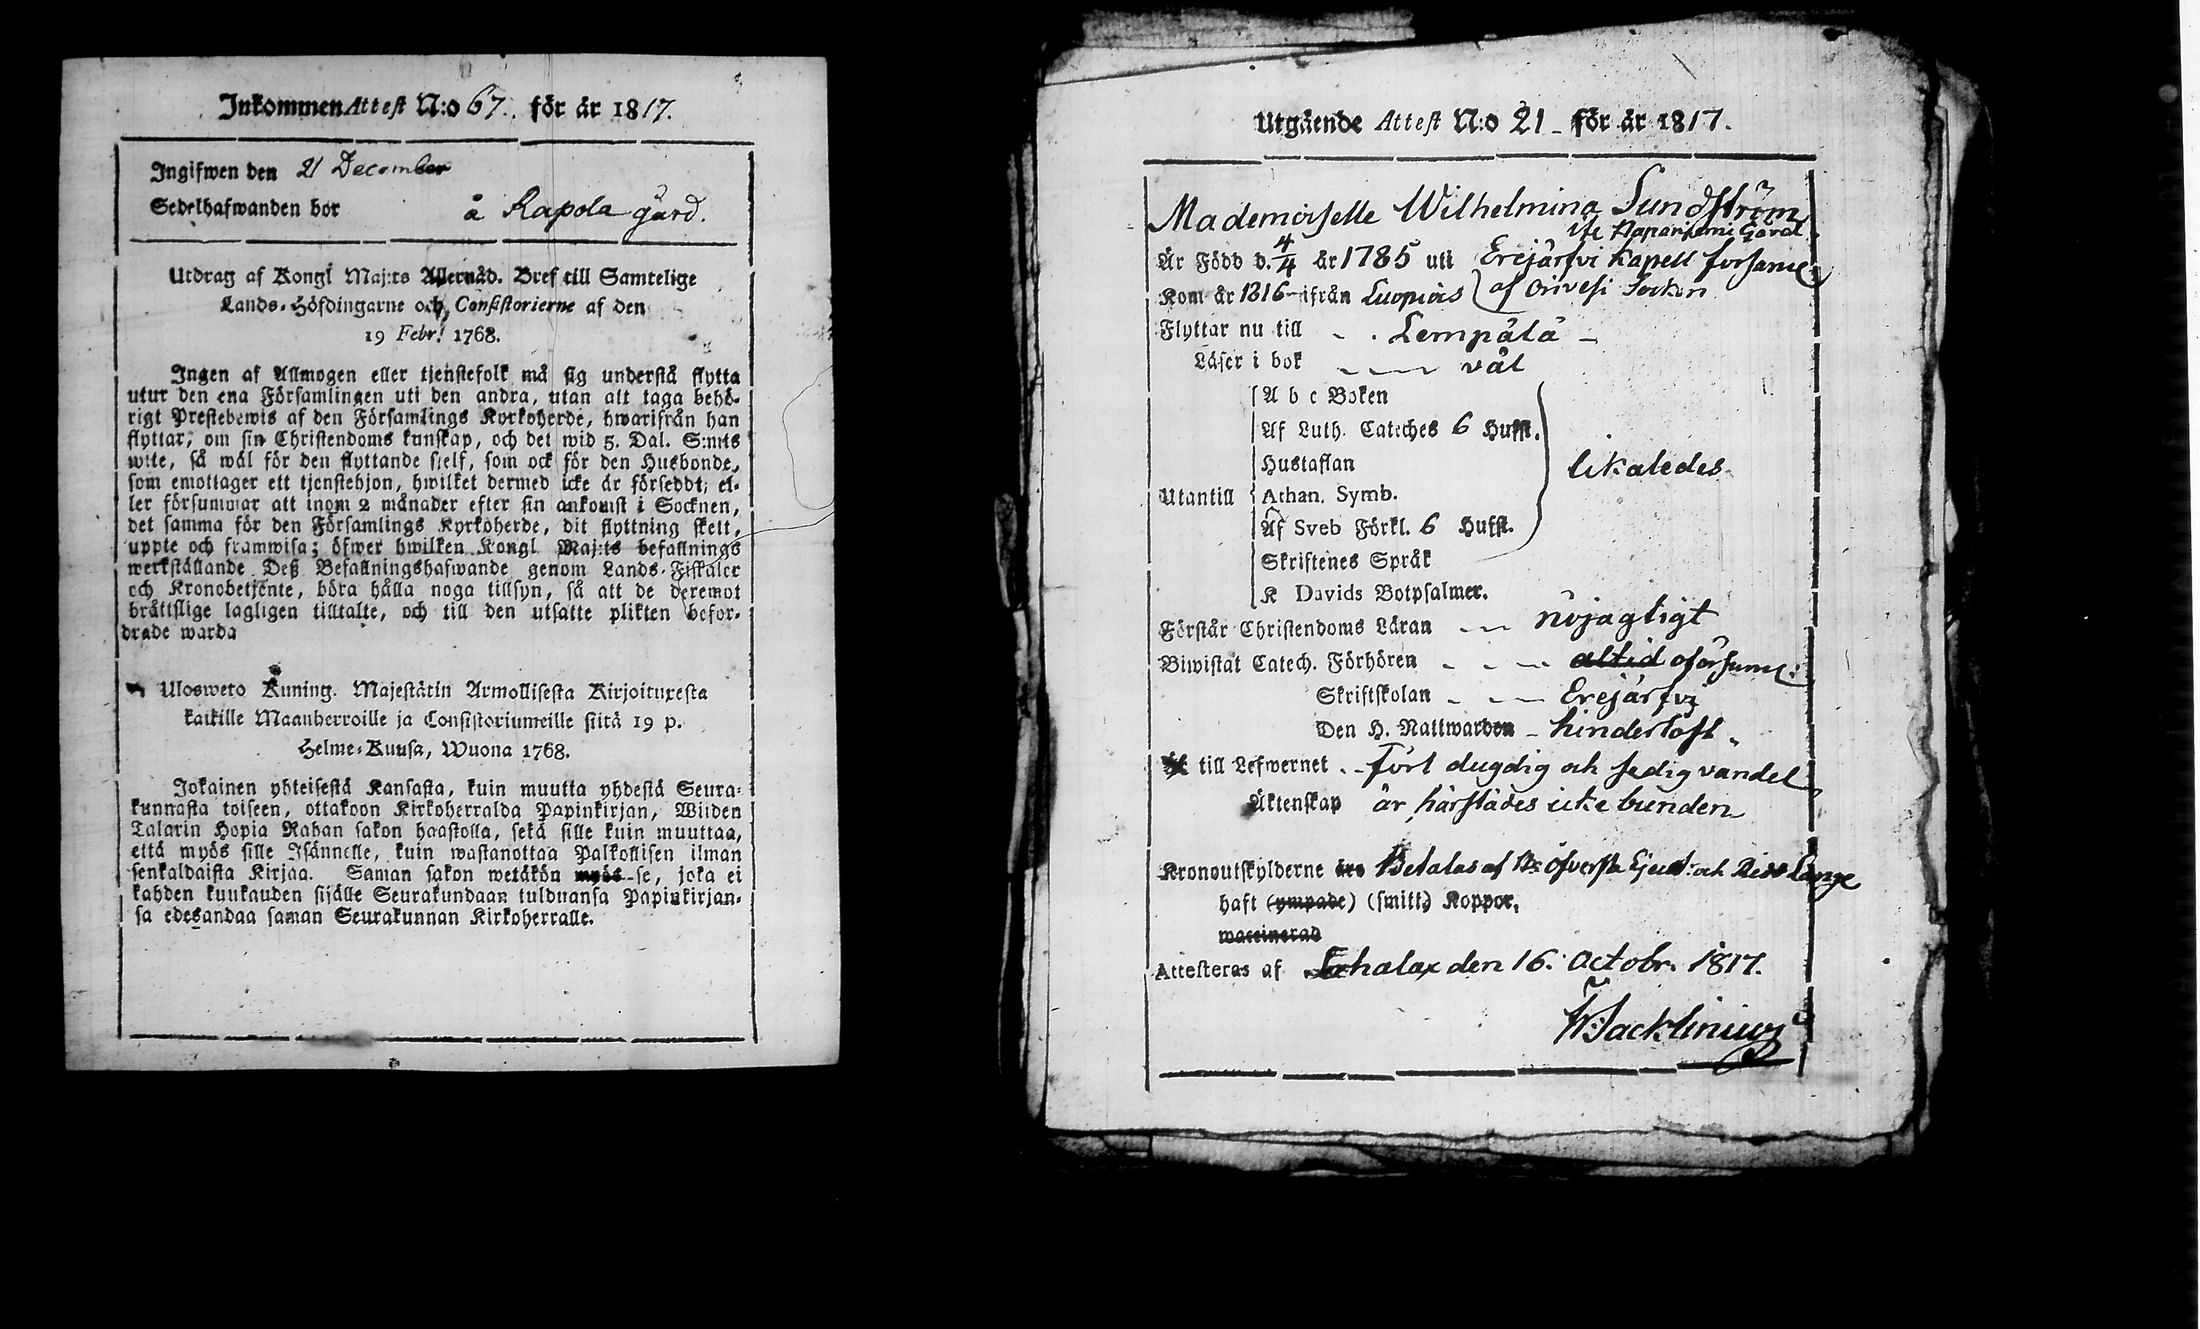 Inkommen Attest N:o 67. för år 1817.
Ingifwen den 21 December
Sedelhafwanden bor å Rapola gård.
Utdrag af Kongl Maj:ts Allernåd. Bref till Samtelige
Lands-Höfdingarne och Consistorierne af den
19 Febr. 1768.
Ingen af Allmogen eller tjenstefolk må sig understå flytta
utur den ena Församlingen uti den andra, utan att taga behö-
rigt Prestebewis af den Församlings Kyrkoherde, hwarifrån han
flyttar, om sin Christendoms kunskap, och det wid 5. Dal. S:mts
wite, så wäl för den flyttande sielf, som ock för den Husbonde,
som emottager ett tjenstehjon, hwilket dermed icke är försedt; el-
ler försummar att inom 2 månader efter sin ankomst i Socknen,
det samma för den Församlings Kyrkoherde, dit flyttning skett,
uppte och framwisa; öfwer hwilken Kongl Maj:ts befallnings
werkställande Deß Befallningshafwande genom Lands-Fiskaler
och Kronobetjente, böra hålla noga tillsyn, så att de deremot
bråttslige lagligen tilltalte, och till den utsatte plikten befor-
drade warda
Ulosweto Kuning. Majestätin Armollisesta Kirjoituxesta
kaikille Maanherroille ja Consistoriumeille siitä 19 p.
Helme-Kuusa, Wuona 1768.
Jokainen yhteisestä Kansasta, kuin muutta yhdestä Seura-
kunnasta toiseen, ottakoon Kirkoherralda Papinkirjan, Wiiden
Talarin Hopia Rahan sakon haastolla, sekä sille kuin muuttaa,
että myös sille Isännelle, kuin wastanottaa Palkollisen ilman
senkaldaista Kirjaa. Saman sakon wetäkön myös se, joka ei
kahden kuukauden sisälle Seurakundaan tulduansa Papinkirjan-
sa edesandaa saman Seurakunnan Kirkoherralle.
Utgående Attest N:o 21 för år 1817.
Mademoiselle Wilhelmina Sundström
Är Född d. 4/4 år 1785 uti Erejärfvi Kapell
Kom år 1816 ifrån Luopiois af Orivesi Socken
Flyttar nu till Lempälä
Läser i bok väl
A b c Boken
Af Luth. Cateches 6 Hufst.
Hustaflan
likaledes
Utantill Athan. Symb.
Af Sveb Förkl. 6 Hufst.
Skriftenes Språk
K Davids Botpsalmer.
Förstår Christendoms Läran nöjagtigt
Biwistat Catech. Förhören altid oförsuml:
Skriftskolan Erejärfvi
Den H. Nattwarden hinderlöst
till Lefwernet fört dugdig och sedig vandel
Äktenskap är härstädes icke bunden
Kronoutskylderne äro Betalas af och
haft (ympade) (smitt.) Koppor,
waccinerad
Attesteras af Sahalax den 16. Octobr. 1817.